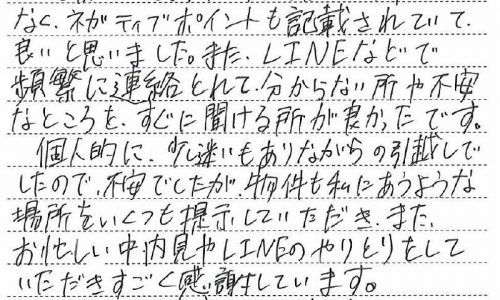 なく、ネガティブポイントも記載されていて、
良いと思いました。また、LINEなどで
頻繁に連絡とれて、分からない所や不安
なところを、すぐに聞ける所が良かったです。
個人的に、少し迷いもありながらの引越しで
したので、不安でしたが、物件も私にあうような
場所をいくつも提示していただき、また、
お忙しい中内見やLINEのやりとりをして
いただきすごく感謝しています。